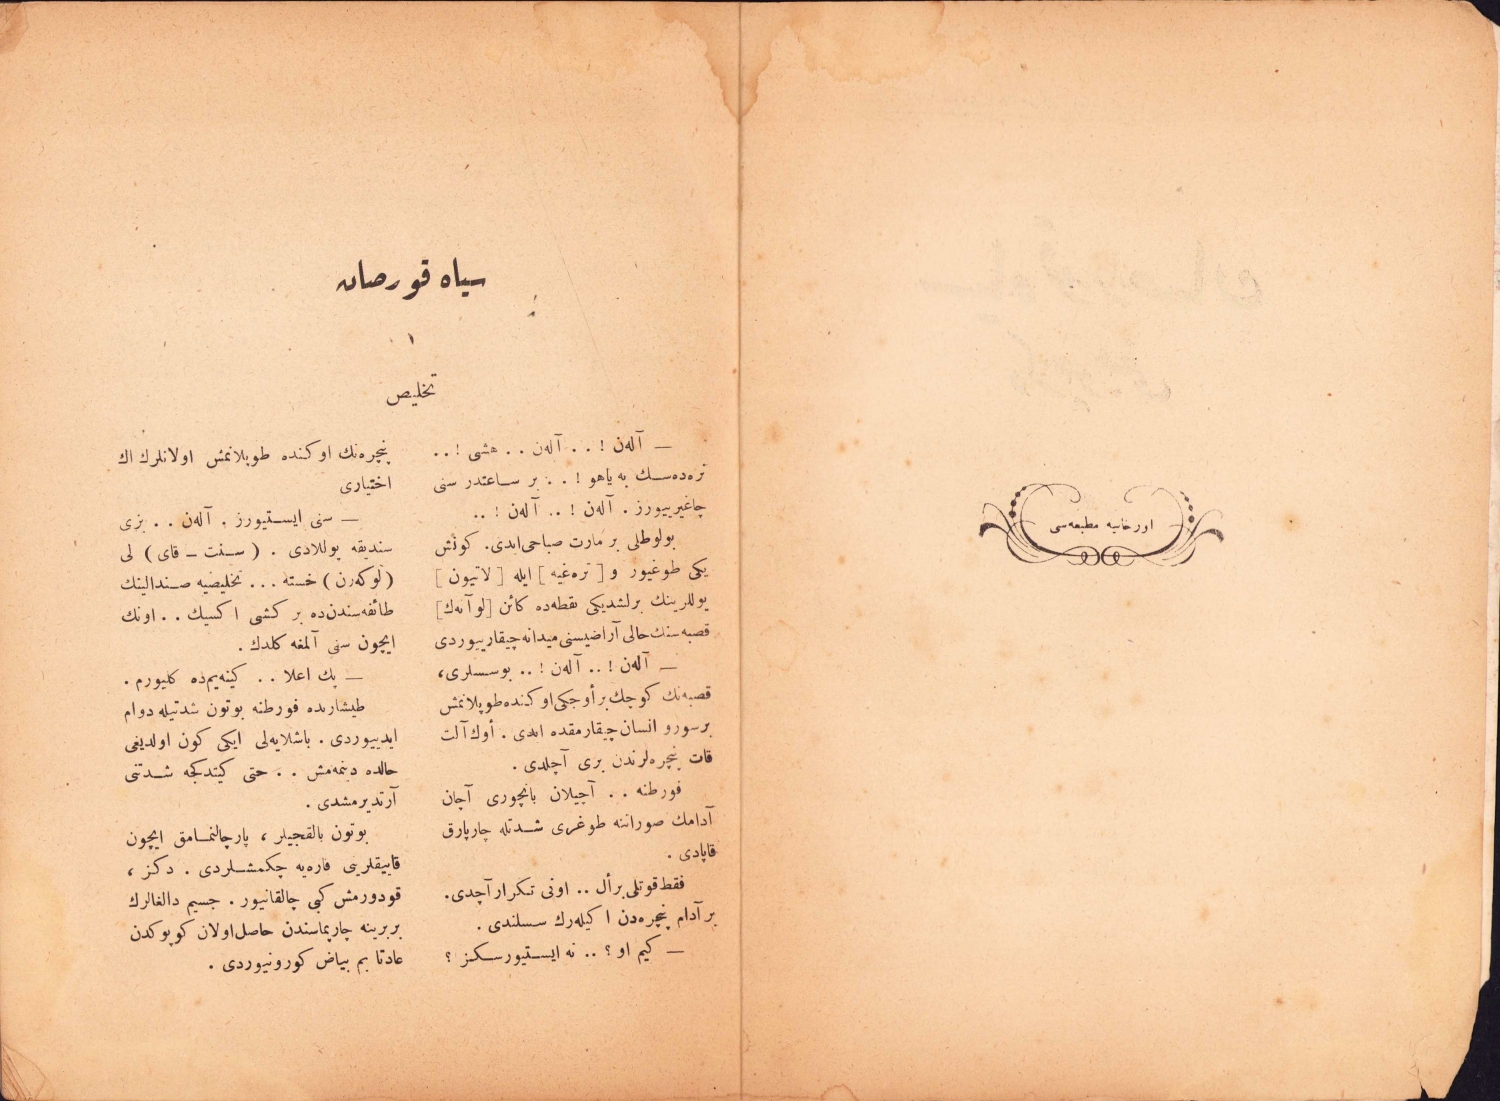 اورخانیه مطبعه‌سی
سیاه قورصان
۱
تخلیص
— آلەن ! . . آلەن . . هشی ! . .
نره‌ده‌سـك به یاهو ! . . بر سـاعتدر سنی
چاغیرییورز . آلەن ! .. آلەن ! ..
بولوطلی بر مارت صباحی ایدی. کونش
یکی طوغیور و [ تره‌غیه ] ایله [ لانیون ]
یوللرینك برلشدیکی نقطه‌ده کائن [لوآنه‌ك]
قصبه‌سنك خالی آراضیسنی میدانه چیقارییوردی
— آلەن ! .. آلەن ! .. بوسسلری،
قصبه‌نك کوجك بر أوجکی اوکنده طوپلانمش
بر سورو انسان چیقارمقده ایدی . أوك آلت
قات پنجره‌لرندن بری آچلدی .
فورطنه . . آچیلان پانجوری آچان
آدامك صوراتنه طوغری شـدتله چارپارق
قاپادی .
فقط قوتلی بر أل .. اونی تکرار آچدی.
بر آدام پنجره‌دن اکیله‌رك سـسلندی .
— کیم او ؟ .. نه ایسـتیورسـکز ؟
پنجره‌نك اوکنده طوپلانمش اولانلرك اك
اختیاری
— سنی ایسـتیورز . آلەن . . بزی
سندیقه یوللادی . ( سـنت ـ قای ) لی
( لوکەرن ) خسته . . . تخلیصیه صـندالینك
طائفه‌سندن‌ده بر کشی اکسیك . . اونك
ایچون سنی آلمغه کلدك .
— پك اعلا . . کینه‌یم‌ده کلیورم .
طیشاریده فورطنه بوتون شدتیله دوام
ایدییوردی . باشلایه‌لی ایکی کون اولدیغی
حالده دینمه‌مش . . حتی کیتدکجه شـدتنی
آرتدیرمشدی .
بوتون بالقجیلر ، پارچالنمـامق ایچون
قاییقلرینی قاره‌یه چکمشـلردی . دکز ،
قودورمش کبی چالقانیور . جسیم دالغالرك
بربرینه چارپماسندن حاصل اولان کوپوکدن
عادتا بم بیاض کورونیوردی .